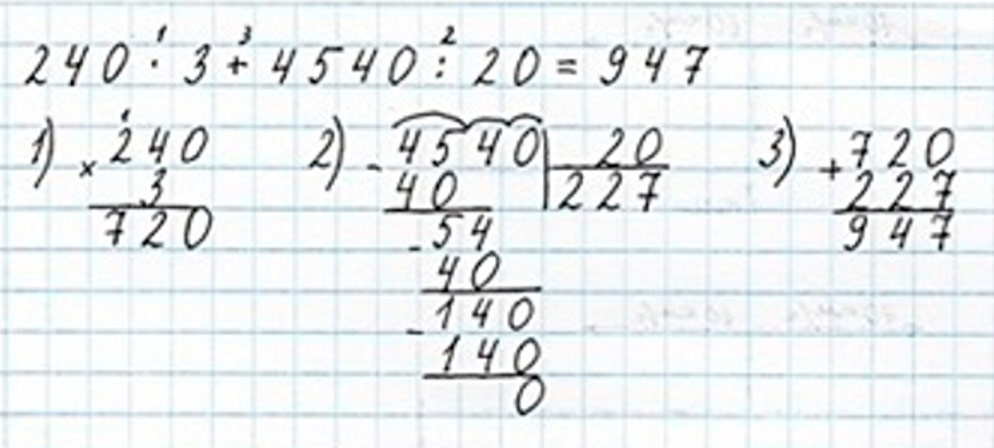 240 · 3 + 4540 : 20 = 947
1 3 2
1) × 240
1
3
720
2) - 4540 | 20
40 227
- 54
40
- 140
140
0
3) + 720
227
947